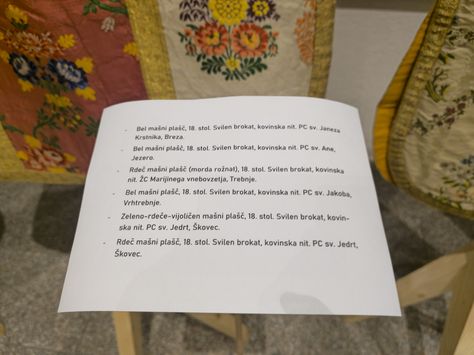 - Bel mašni plašč, 18. stol. Svilen brokat, kovinska nit. PC sv. Janeza
Krstnika, Breza.
- Bel mašni plašč, 18. stol. Svilen brokat, kovinska nit. PC sv. Ane,
Jezero.
- Rdeč mašni plašč (morda rožnat), 18. stol. Svilen brokat, kovinska
nit. ŽC Marijinega vnebovzetja, Trebnje.
- Bel mašni plašč, 18. stol. Svilen brokat, kovinska nit. PC sv. Jakoba,
Vrhtrebnje.
- Zeleno-rdeče-vijoličen mašni plašč, 18. stol. Svilen brokat, kovin-
ska nit. PC sv. Jedrt, Škovec.
- Rdeč mašni plašč, 18. stol. Svilen brokat, kovinska nit. PC sv. Jedrt,
Škovec.